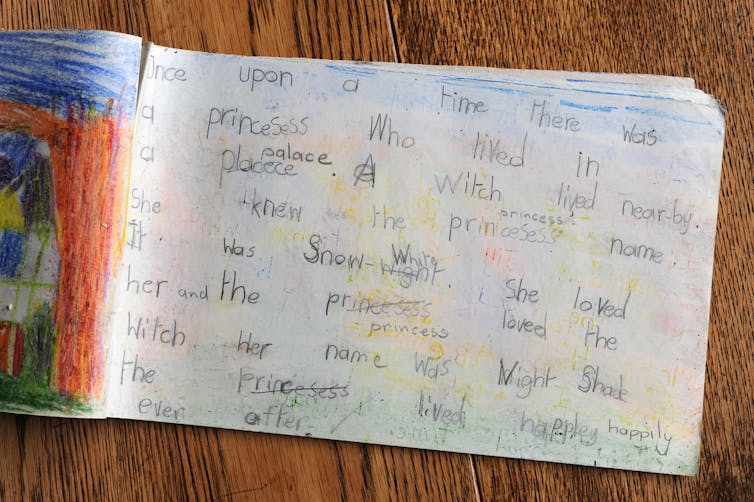 Once upon a time there was
a princesess Who lived in
palace.
a placece A Witch lived near-by.
princesess
She knew the princesess name.
White
It was Snow-Wight. She loved
her and the princesess loved the
princess
Witch her name was Night Shade
the princesess lived happley happily
ever after.